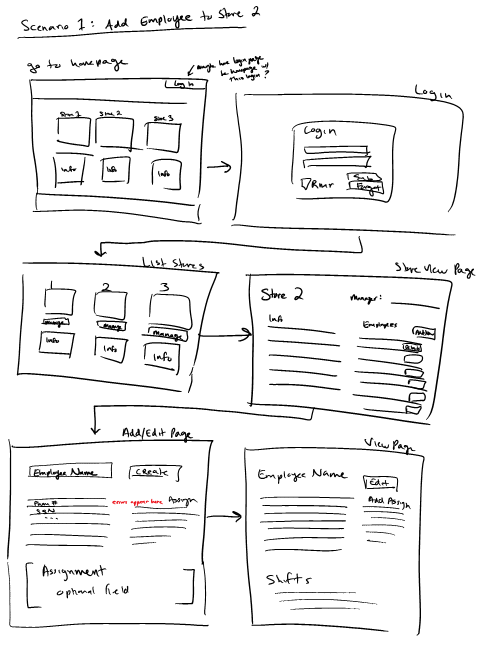 Scenario 1: Add Employee to Store 2
go to homepage
maybe have login page
be homepage w/
this login?
Log In
Store 1
Store 2
Store 3
Info
Info
Info
Login
Login
Submit
Forgot
List Stores
1
2
3
Manage
Manage
Manage
Info
Info
Info
Store View Page
Store 2
Manager:
Info
Employees
Add/Edit Page
Employee Name
Create
Phone #
SSN
...
errors appear here
Assign
Assignment
optional field
View Page
Employee Name
Edit
Add Assign
Shifts